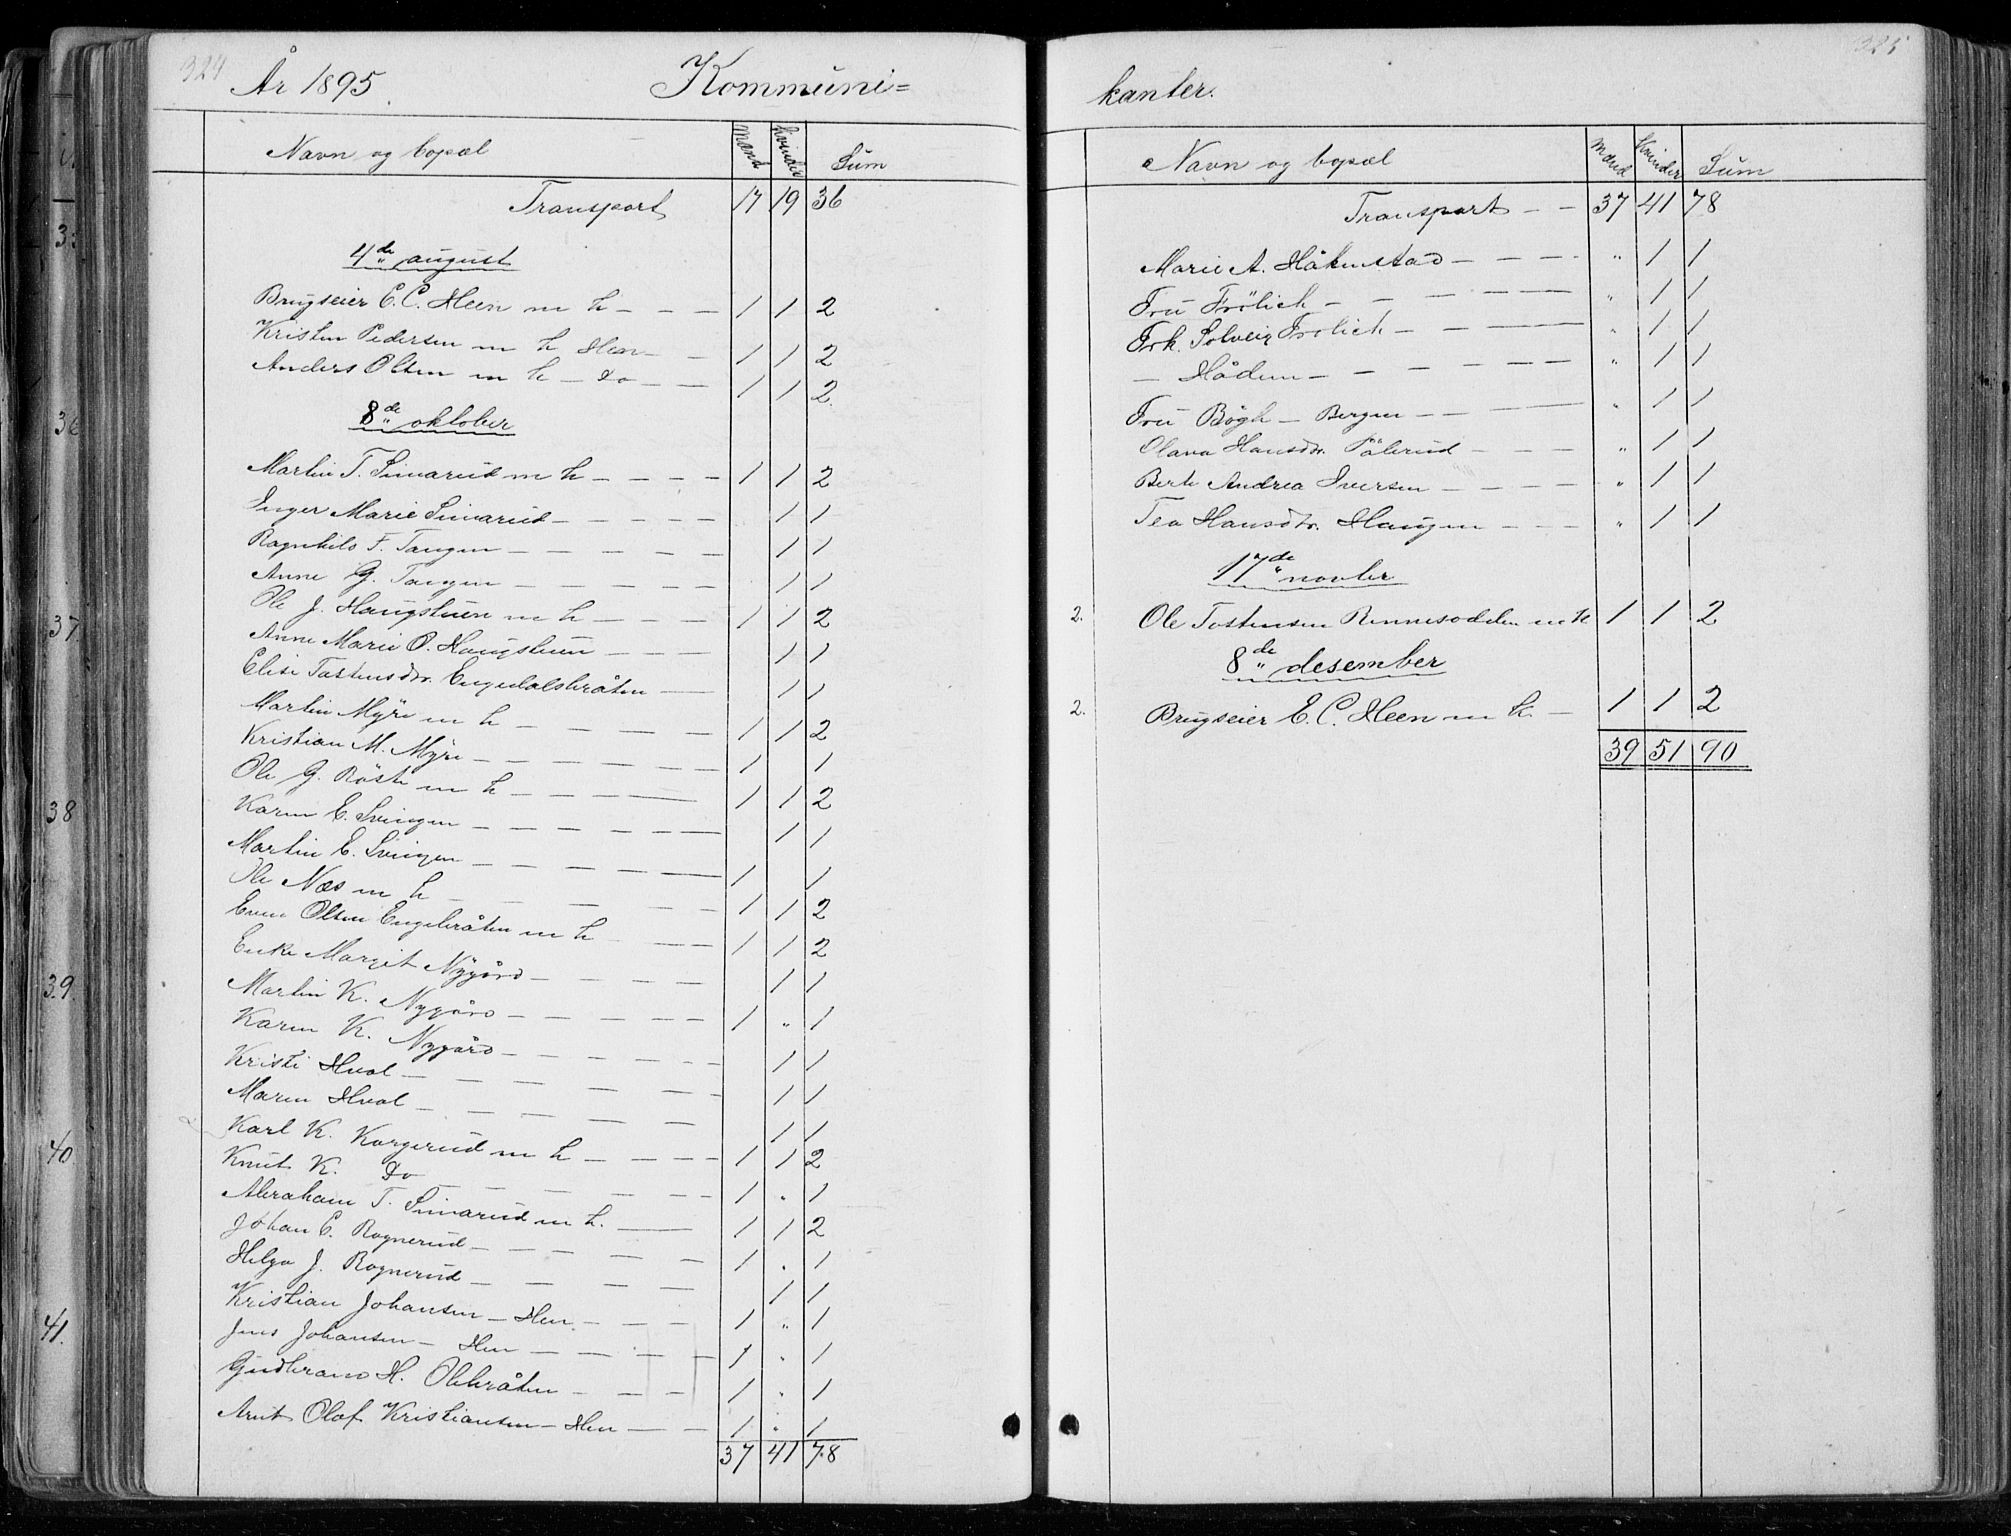 324
År 1895 Kommuni=
Navn og bopæl Mænd Kvinder Sum
Transport 17 19 36
4de august
Brugseier E. C. Heen m h — — — 1 1 2
Kristen Pedersen m h Hen — — 1 1 2
Anders Olsen m h — Do — — 1 1 2
8de oktober
Martin T. Simarud m h — — — — 1 1 2
Inger Marie Simarud — — — — — 1 1
Ragnhild F. Tangen — — — — — 1 1
Anne G. Tangen — — — — — 1 1
Ole J. Haugstuen m h — — — 1 1 2
Anne Marie O. Haugstuen — — — — 1 1
Elise Tostensdtr. Engedalsbråten — — 1 1
Martin Myre m h — — — — — 1 1 2
Kristian M. Myre — — — — — — 1 1
Ole G. Röste m h — — — — — 1 1 2
Karen E. Svingen — — — — — — 1 1
Martin E. Svingen — — — — — 1 1
Ole Næs m h — — — — — — 1 1 2
Even Olsen Engebråten m h — — — 1 1 2
Enke Margit Nygård — — — — — 1 1
Martin K. Nygård — — — — — 1 „ 1
Karen K. Nygård — — — — — — 1 1
Kristi Hval — — — — — — 1 1
Maren Hval — — — — — — 1 1
Karl K. Korgerud m h — — — — 1 1 2
Knut K. Do — — — — — 1 „ 1
Abraham T. Simarud m h. — — 1 1 2
Johan E. Rognerud — — — — — — 1 „ 1
Helga J. Rognerud — — — — — 1 1
Kristian Johansen — Hen — — — 1 „ 1
Jens Johansen — Hen — — — — 1 „ 1
Gudbrand H. Olebråten — — — 1 „ 1
Arnt Olaf Kristiansen — Hen — — 1 „ 1
37 41 78
325
kanter.
Navn og bopæl Mænd Kvinder Sum
Transport — — 37 41 78
Marie A. Håkenstad — — — — „ 1 1
Fru Frölich — — — — — „ 1 1
Frk. Solveig Frölich — — — „ 1 1
— Hådem — — — — — — „ 1 1
Fru Bögh — Bergen — — — „ 1 1
Olava Hansdtr. Pålerud — — — „ 1 1
Berte Andrea Iversen — — — — „ 1 1
Tea Hansdtr. Haugen — — — „ 1 1
17de novber
2. Ole Tostensen Rennesodden m h 1 1 2
8de desember
2. Brugseier E. C. Heen m h. — 1 1 2
39 51 90
35
36
37
38
39.
40
41.